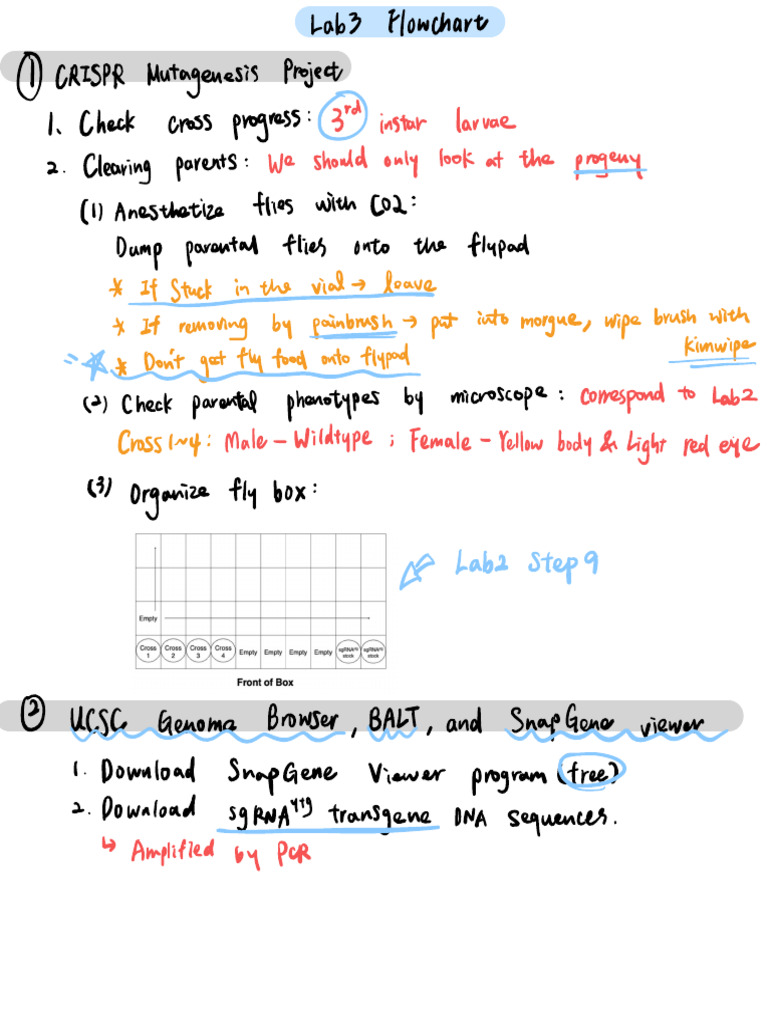 Lab3 Flowchart
① CRISPR Mutagenesis Project
1. Check cross progress: 3rd instar larvae
2. Clearing parents: We should only look at the progeny
(1) Anesthetize flies with CO2:
Dump parental flies onto the flypad
* If stuck in the vial → leave
* If removing by painbrush → put into morgue, wipe brush with
kimwipe
* Don't get fly food onto flypad
(2) Check parental phenotypes by microscope: Correspond to Lab2
Cross 1~4: Male - Wildtype ; Female - Yellow body & Light red eye
(3) Organize fly box:
Lab2 Step 9
Empty
Cross 1 Cross 2 Cross 3 Cross 4 Empty Empty Empty Empty stock stock
Front of Box
② UCSC Genoma Browser, BALT, and SnapGene viewer
1. Download SnapGene Viewer program (free)
2. Download sgRNA transgene DNA sequences.
↳ Amplified by PCR